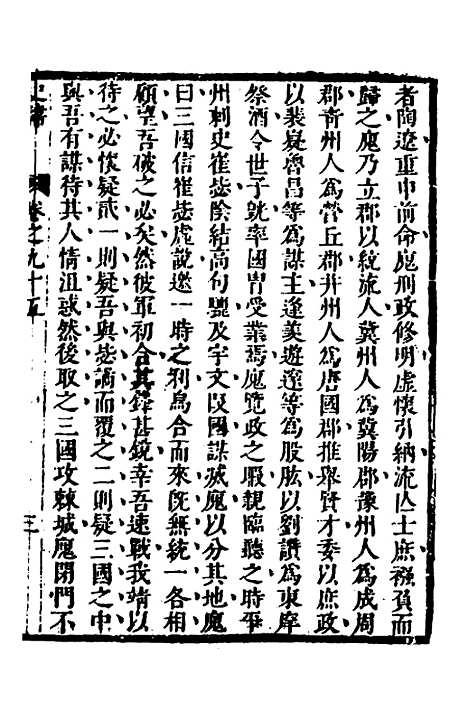 者陶遼重申前命廆刑政修明虛懷引納流亾士庶襁負而
歸之廆乃立郡以統流人冀州人爲冀陽郡豫州人爲成周
郡靑州人爲營丘郡并州人爲唐國郡推舉賢才委以庶政
以裴嶷魯昌等爲謀主逄羨遊邃等爲股肱以劉讚爲東庠
祭酒令世子皝率國胄受業焉廆覽政之暇親臨聽之時平
州刺史崔毖陰結高句驪及宇文叚國謀滅廆以分其地廆
曰三國信崔毖虛說邀一時之利烏合而來旣無統一各相
顧望吾破之必矣然彼軍初合其鋒甚銳幸吾速戰我靖以
待之必懷疑貳一則疑吾與毖譎而覆之二則疑三國之中
與吾有謀待其人情沮惑然後取之三國攻棘城廆閉門不
卷之九十五
三